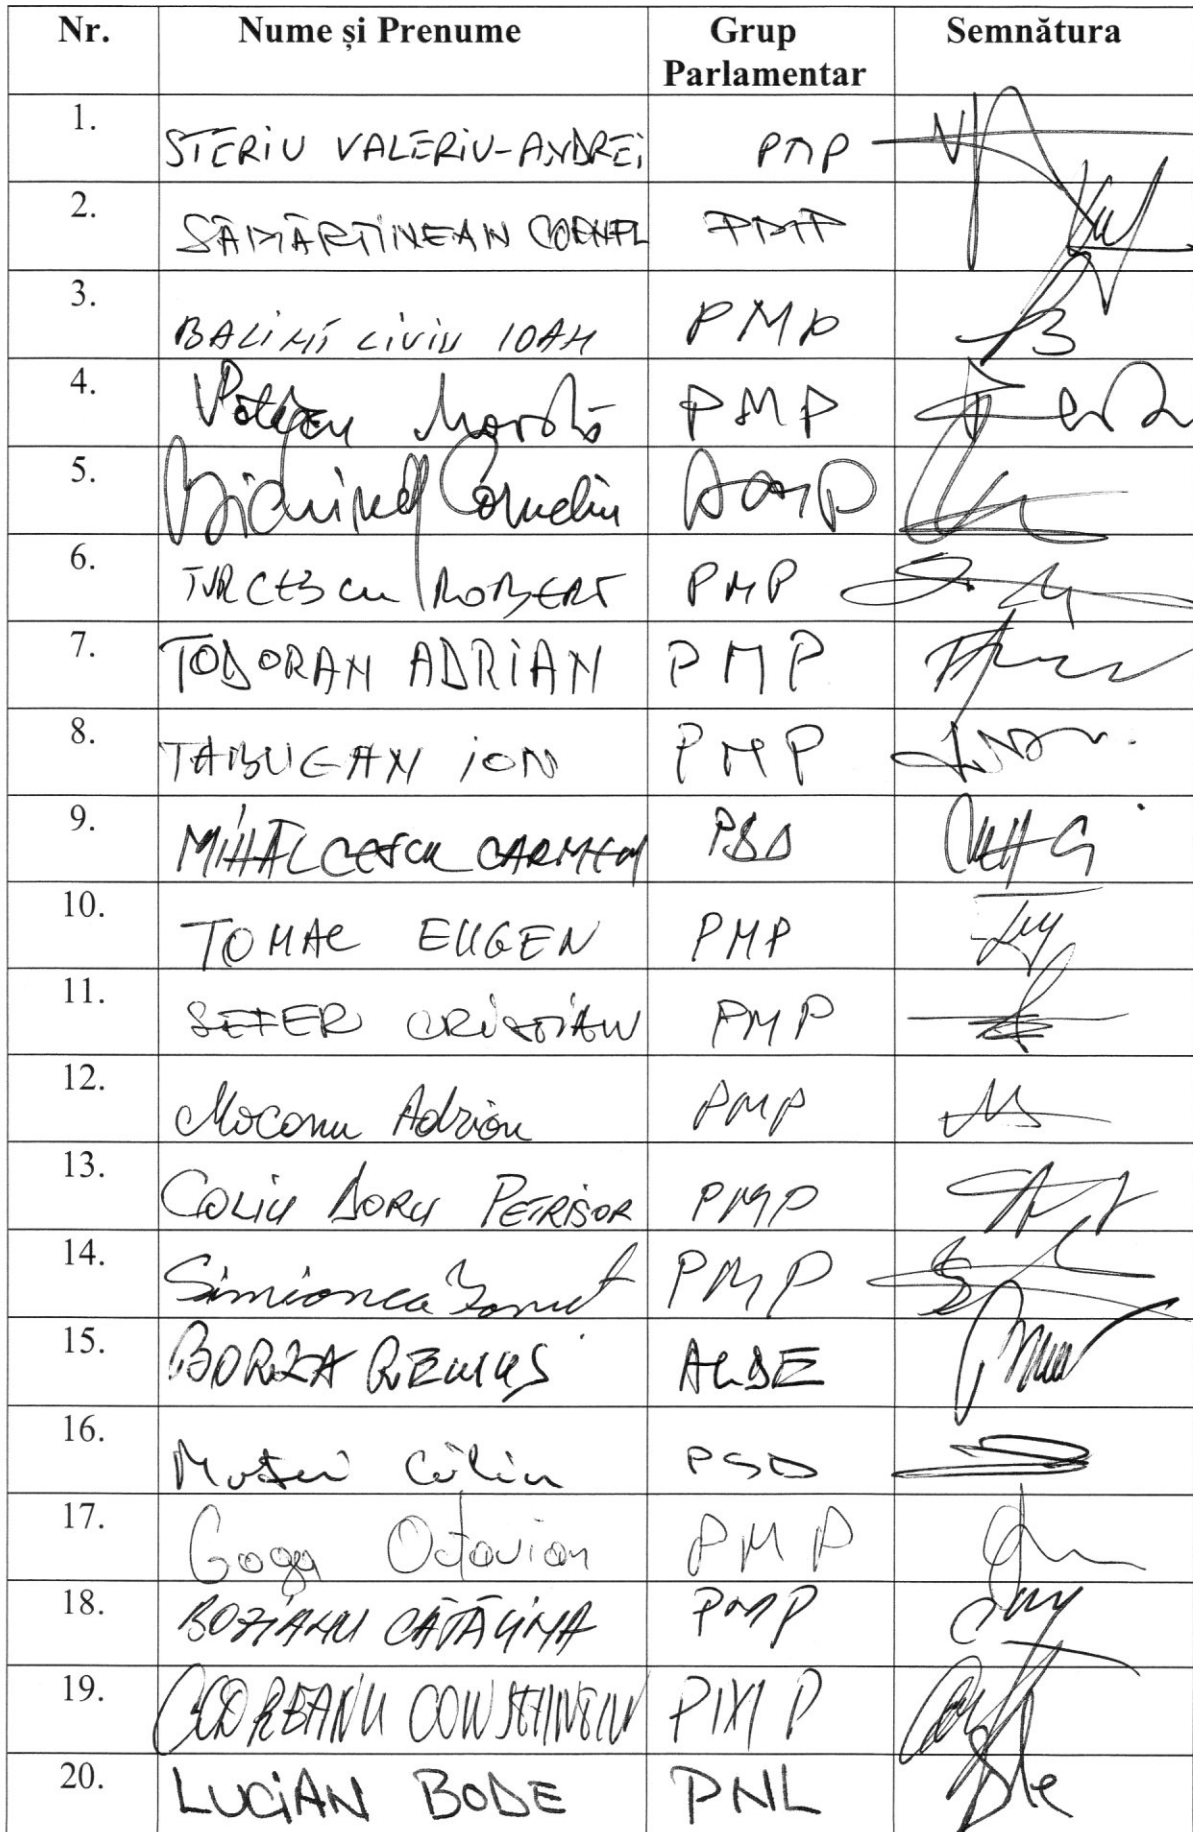 Nr. Nume și Prenume Grup Parlamentar Semnătura
1. STERIU VALERIU-ANDREI PMP
2. SĂMĂRTINEAN CORNEL PMP
3. BALINT LIVIU IOAN PMP
4. PMP
5. Bichineț Corneliu PMP
6. TURCESCU ROBERT PMP
7. TODORAN ADRIAN PMP
8. TABUGAN ION PMP
9. MIHĂLCESCU CARMEN PSD
10. TOMAC EUGEN PMP
11. SEFER CRISTIAN PMP
12. Mocanu Adrian PMP
13. COLIU DORU PETRISOR PMP
14. Simionca Ionut PMP
15. BORZA REMUS ALDE
16. Călin PSD
17. Goga Octavian PMP
18. BOZIANU CĂTĂLINA PMP
19. CODREANU CONSTANTIN PMP
20. LUCIAN BODE PNL